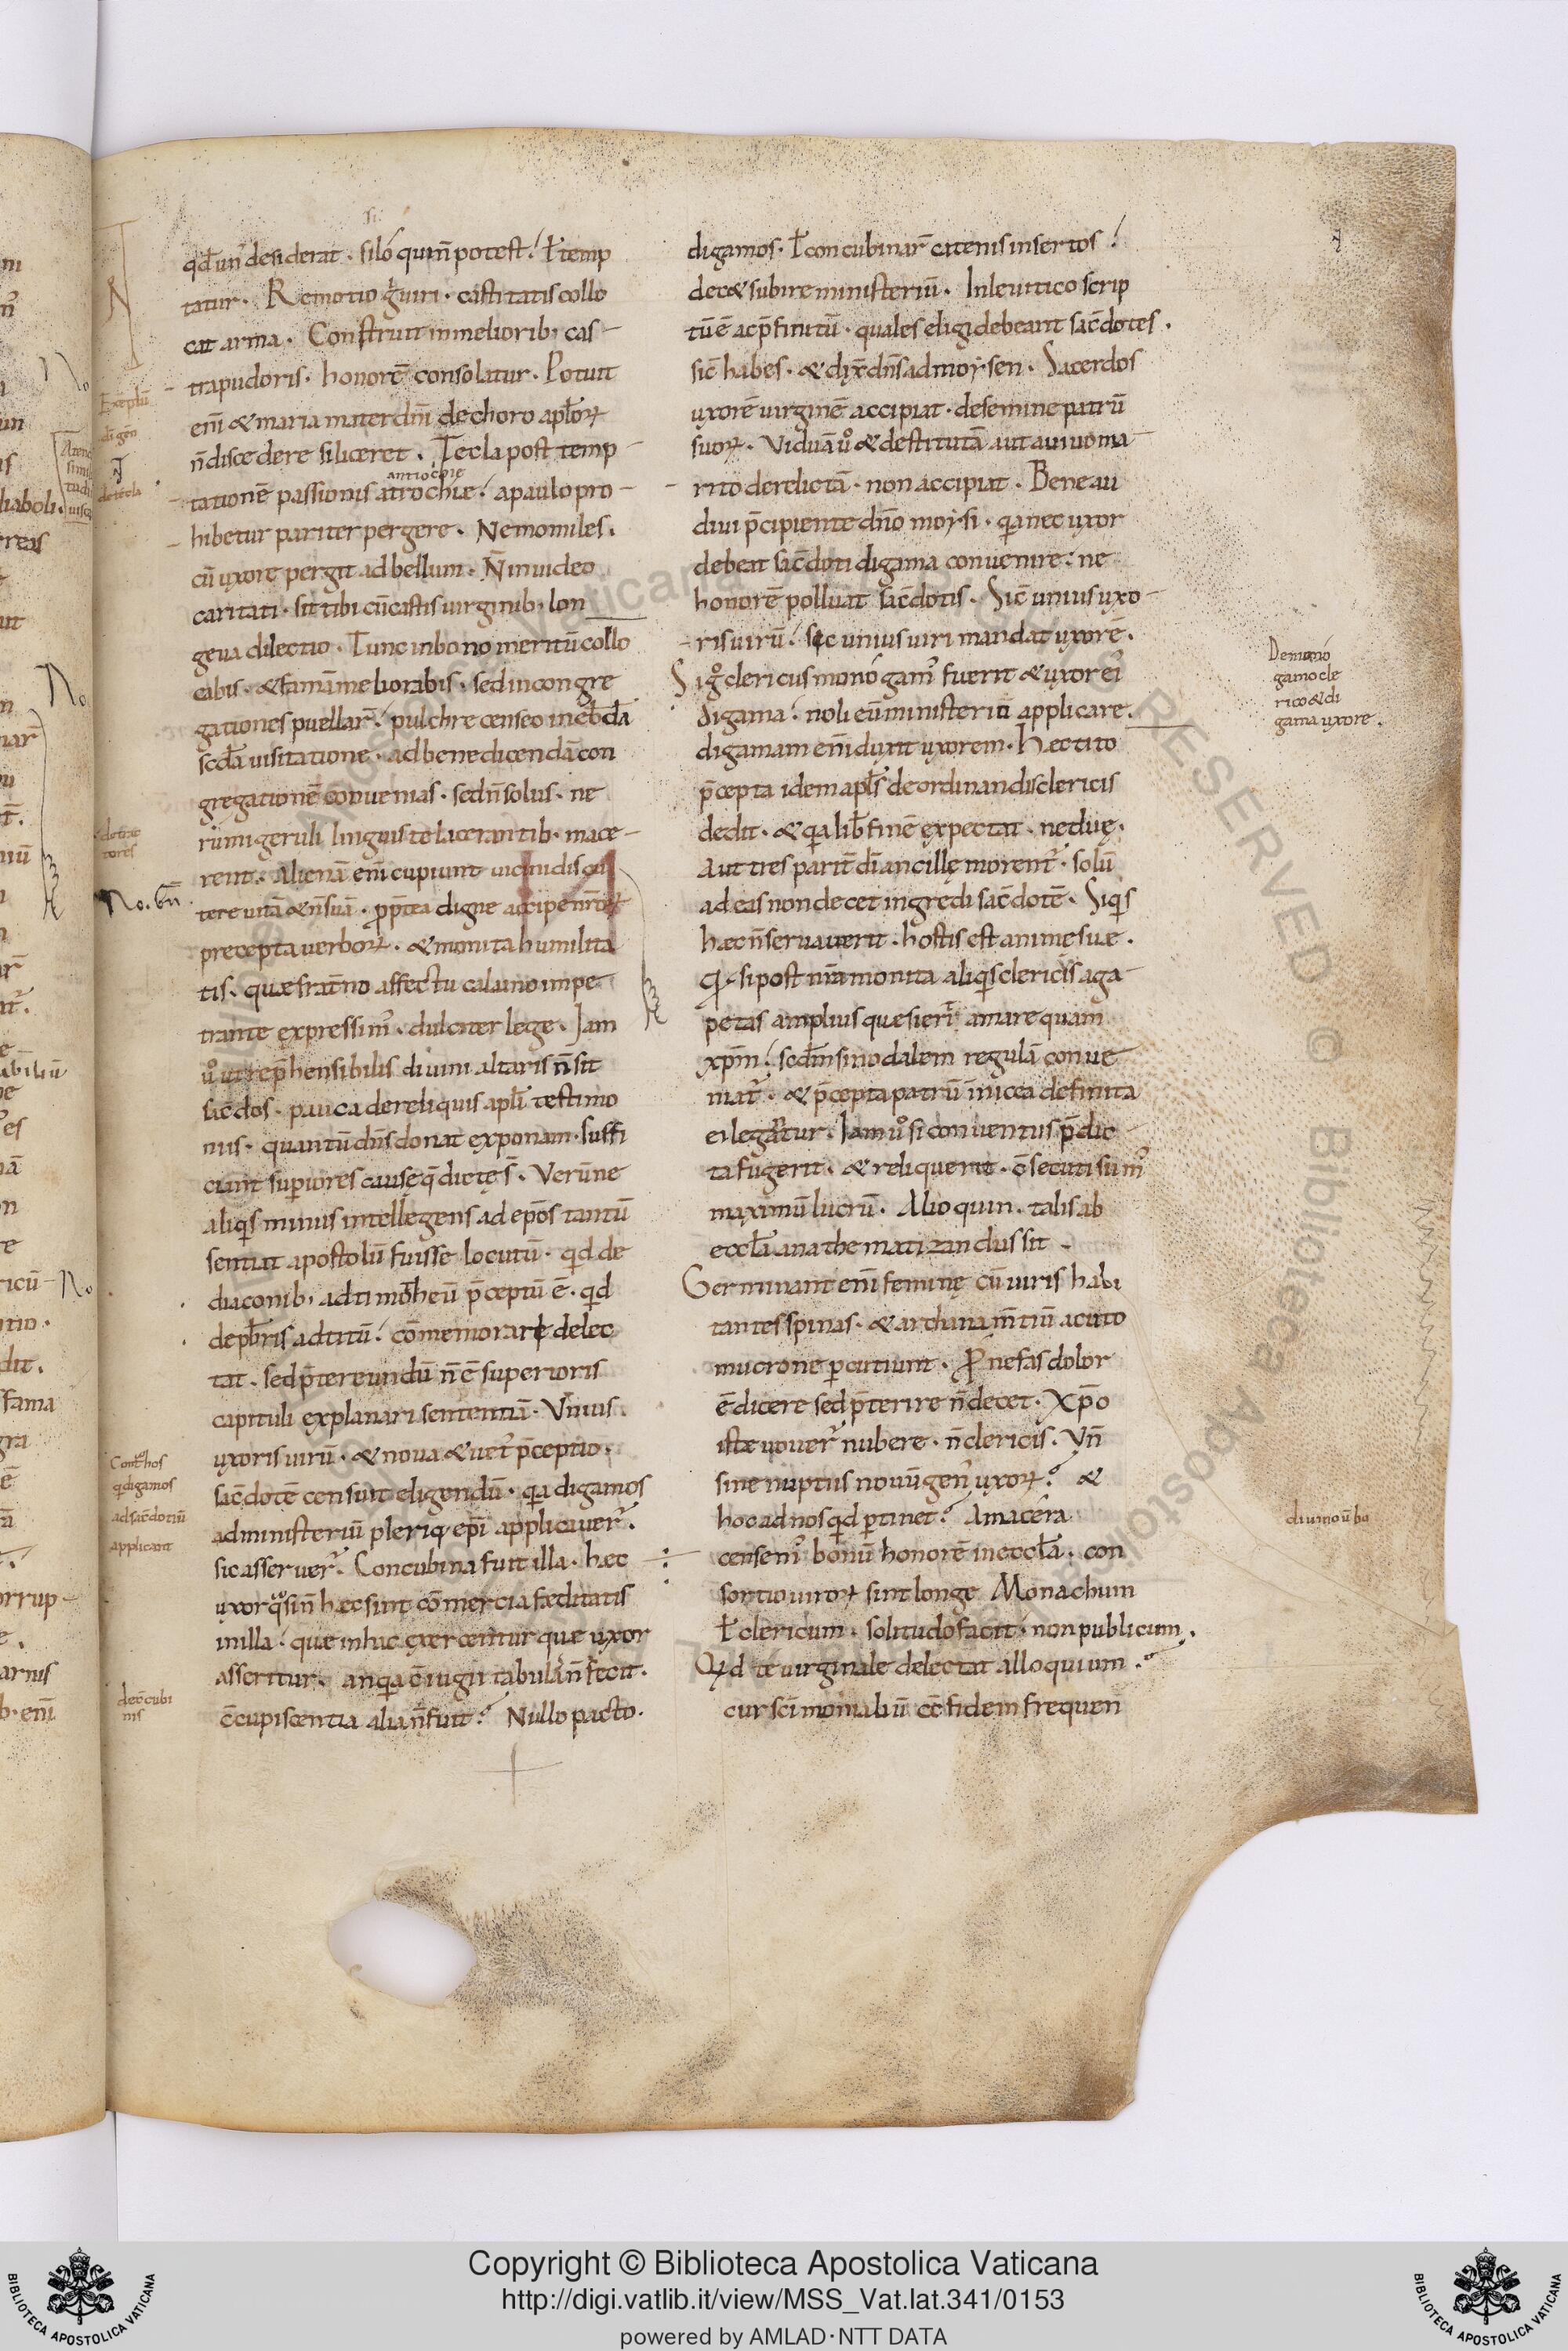 qd̄ un̄ desiderat . si ló quin̄ potest? ł temp
tatur . Remotio g̊ uiri . castitatis collo
cat arma . Construit in meliorib; cas-
tra pudoris . honorē consolatur . Potuit
eni͂ & maria mater dn̄i de choro apl̄oꝝ
n̄ discedere si liceret . Tecla post temp
antiochie
tationē passionis atrochie? a paulo pro-
hibetur pariter pergere . Nemo miles .
cū uxore pergit ad bellum . N̄ inuideo
caritati . sit tibi cū castis uirginib; lon
geua dilectio . Tunc in bono meritū collo
cabis . & famā meliorabis . sed in congre
gationes puellar̄? pulchre censeo in eccl̄a
scd̄a uisitatione . ad benedicendā con
gregationē conuenias . sed n̄ solus . ne
rumigeruli linguis te lacerantib; mace-
rent . Alienā eni͂ cupiunt uicini discu
tere uitā & n̄ suā . ꝓpt̄ea digne accipe nr̄oꝝ
precepta uerboꝝ . & monita humilita
tis . quæ frat̄no affectu calamo impe
trante expressim᾽ . dulciter lege . Iam
ů ut rep̄hensibilis diuini altaris n̄ sit
sac̄dos . pauca de reliquis apl̄i testimo
niis . quantū dn̄s donat exponam . suffi
ciunt superiores causę q̄ dictę s̄ . Verū ne
aliqis minus intellegens ad ep̄os tantū
sentiat apostolū fuisse locutū . qd de
diaconib; ad timoth̄eū p̄ceptū ē . qd
de pb̄ris ad titū? cōmemorare delec
tat . sed p̄tereundū n̄ ē superioris
capituli explanari sententiā . Vnius
uxoris uirū . & noua & uet᾽ p̄ceptio .
sac̄dotē censunt eligendū . qa digamos
ad ministeriū pleriq; ep̄i applicauer᾽ .
sic asseruer᾽ . Concubina fuit illa . hæc
uxor qͦsi n̄ hæc sint cōmercia fæditatis
in illa? que in hac exercentur que uxor
asseritur . an qa c̄iugii tabulā n̄ fecit .
c̄cupiscentia alia n̄ fuit? Nullo pacto .
digamos . ł concubinar̄ catenis insertos?
decet subire ministeriū . In leuitico scrip
tū ē ac p̄finitū . quales eligi debeant sac̄dotes .
sic̄ habes . & dix̄ dn̄s ad moysen . Sacerdos
uxorē uirginē accipiat . de semine patrū
suoꝝ . Viduā ů & destitutā aut a uiuo ma-
rito derelictā . non accipiat . Bene au
diui p̄cipiente dn̄o moysi . qa nec uxor
debeat sac̄doti digama conuenire : ne
honorē polluat sac̄dotis . Sic̄ unius uxo-
ris uirū? sic unius uiri mandat uxorē .
Si g̊ clericus monogam᾽ fuerit & uxor ei᾽
digama? noli eū ministeriū applicare .
digamam eni͂ duxit uxorem . Hæc tito
p̄cepta idem apl̄s de ordinandis clericis
dedit . & qa lib̄ finē expectat . ne duę .
Aut tres parit̄ dī ancillę morent᾽ . solū
ad eas non decet ingredi sac̄dotē . Siqis
hæc n̄ seruauerit . hostis est anime suæ .
si post nr̄a monita aliqis clericis aga-
petas amplius quesierit amare quam
xp̄m? scd̄m sinodalem regulā conue
niat᾽ . & p̄cepta patrū in nicea definita
ei legatur . Iam ů si conuentus p̄dic
ta fugerit . & reliquerit . c̄secuti sum᾽
maximū lucrū . Alioquin . talis ab
eccl̄a anathematizandus sit .
Germinant eni͂ feminę cū uiris habi
tantes spinas . & archana m̄tiū acuto
mucrone percutiunt . Pro nefas dolor
ē dicere sed p̄terire n̄ decet . Xp̄o
istæ uouer᾽ nubere . n̄ clericis . Vn̄
sine nuptiis nouū gen᾽ uxoꝝ? &
hoc ad nos qd pertinet? Amacera
censem᾽ bonū honorē in eccl̄a . con
sortio uiroꝝ sint longe Monachum
ł clericum . solitudo facit . non publicum .
Qd te uirginale delectat alloquium .
cur sc̄imonialiū cc̄fidem frequen
Exēplū
dī gen̄
de tecla
No. bn̄
Contͣ hos
q digamos
ad sac̄dotiū
applicant
de c̄cubi
nis
De mono
gamo cle
rico & di
gama uxore .
Copyright © Biblioteca Apostolica Vaticana
http://digi.vatlib.it/view/MSS_Vat.lat.341/0153
powered by AMLAD·NTT DATA
BIBLIOTECA APOSTOLICA VATICANA
BIBLIOTECA APOSTOLICA VATICANA